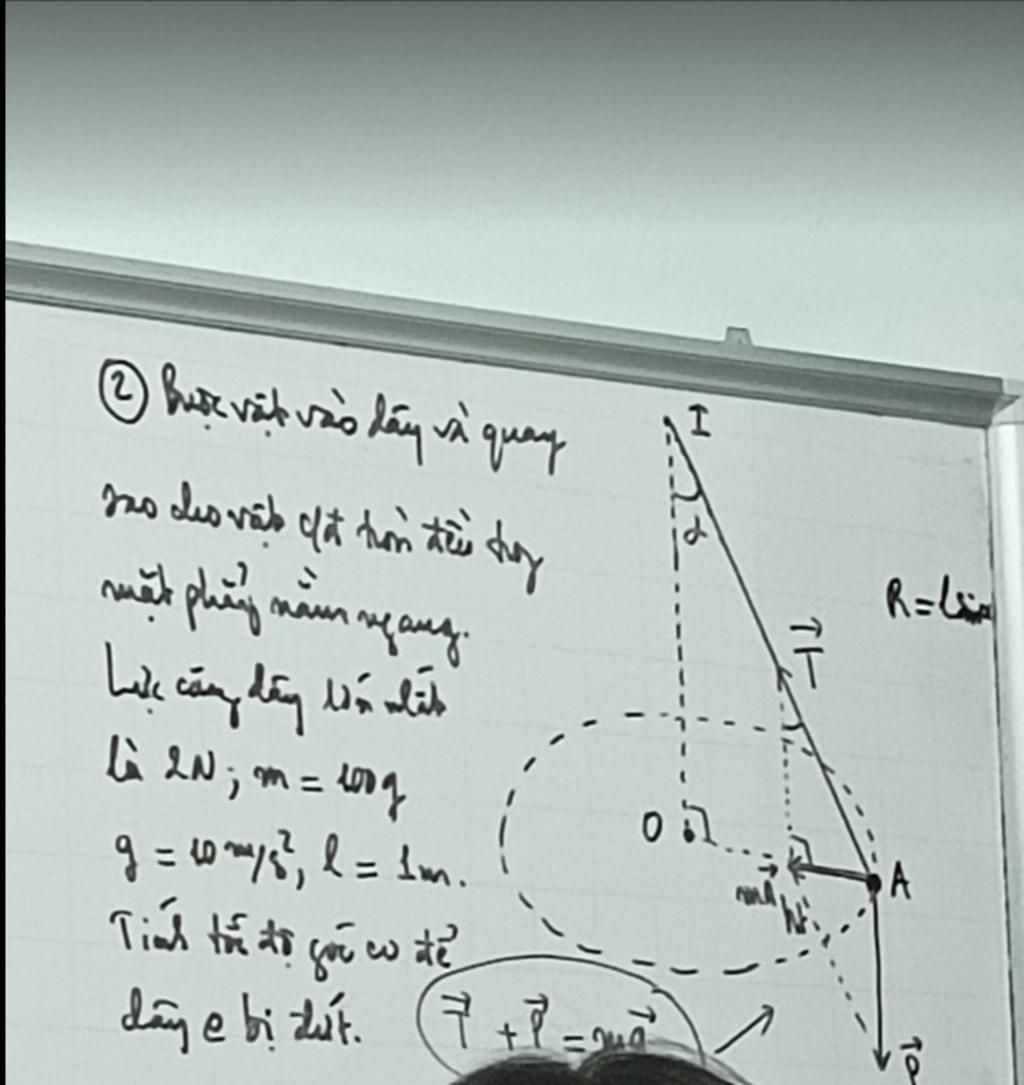 ② Buộc vật vào dây và quay
sao cho vật cđ tròn đều trong
mặt phẳng nằm ngang.
Lực căng dây lớn nhất
là 2N; m = 100g
g = 10 m/s², l = 1m.
Tính tốc độ góc ω để
dây ko bị đứt.
T⃗ + P⃗ = ma⃗
I
α
T⃗
R = lsinα
O
A
ma⃗ht
P⃗